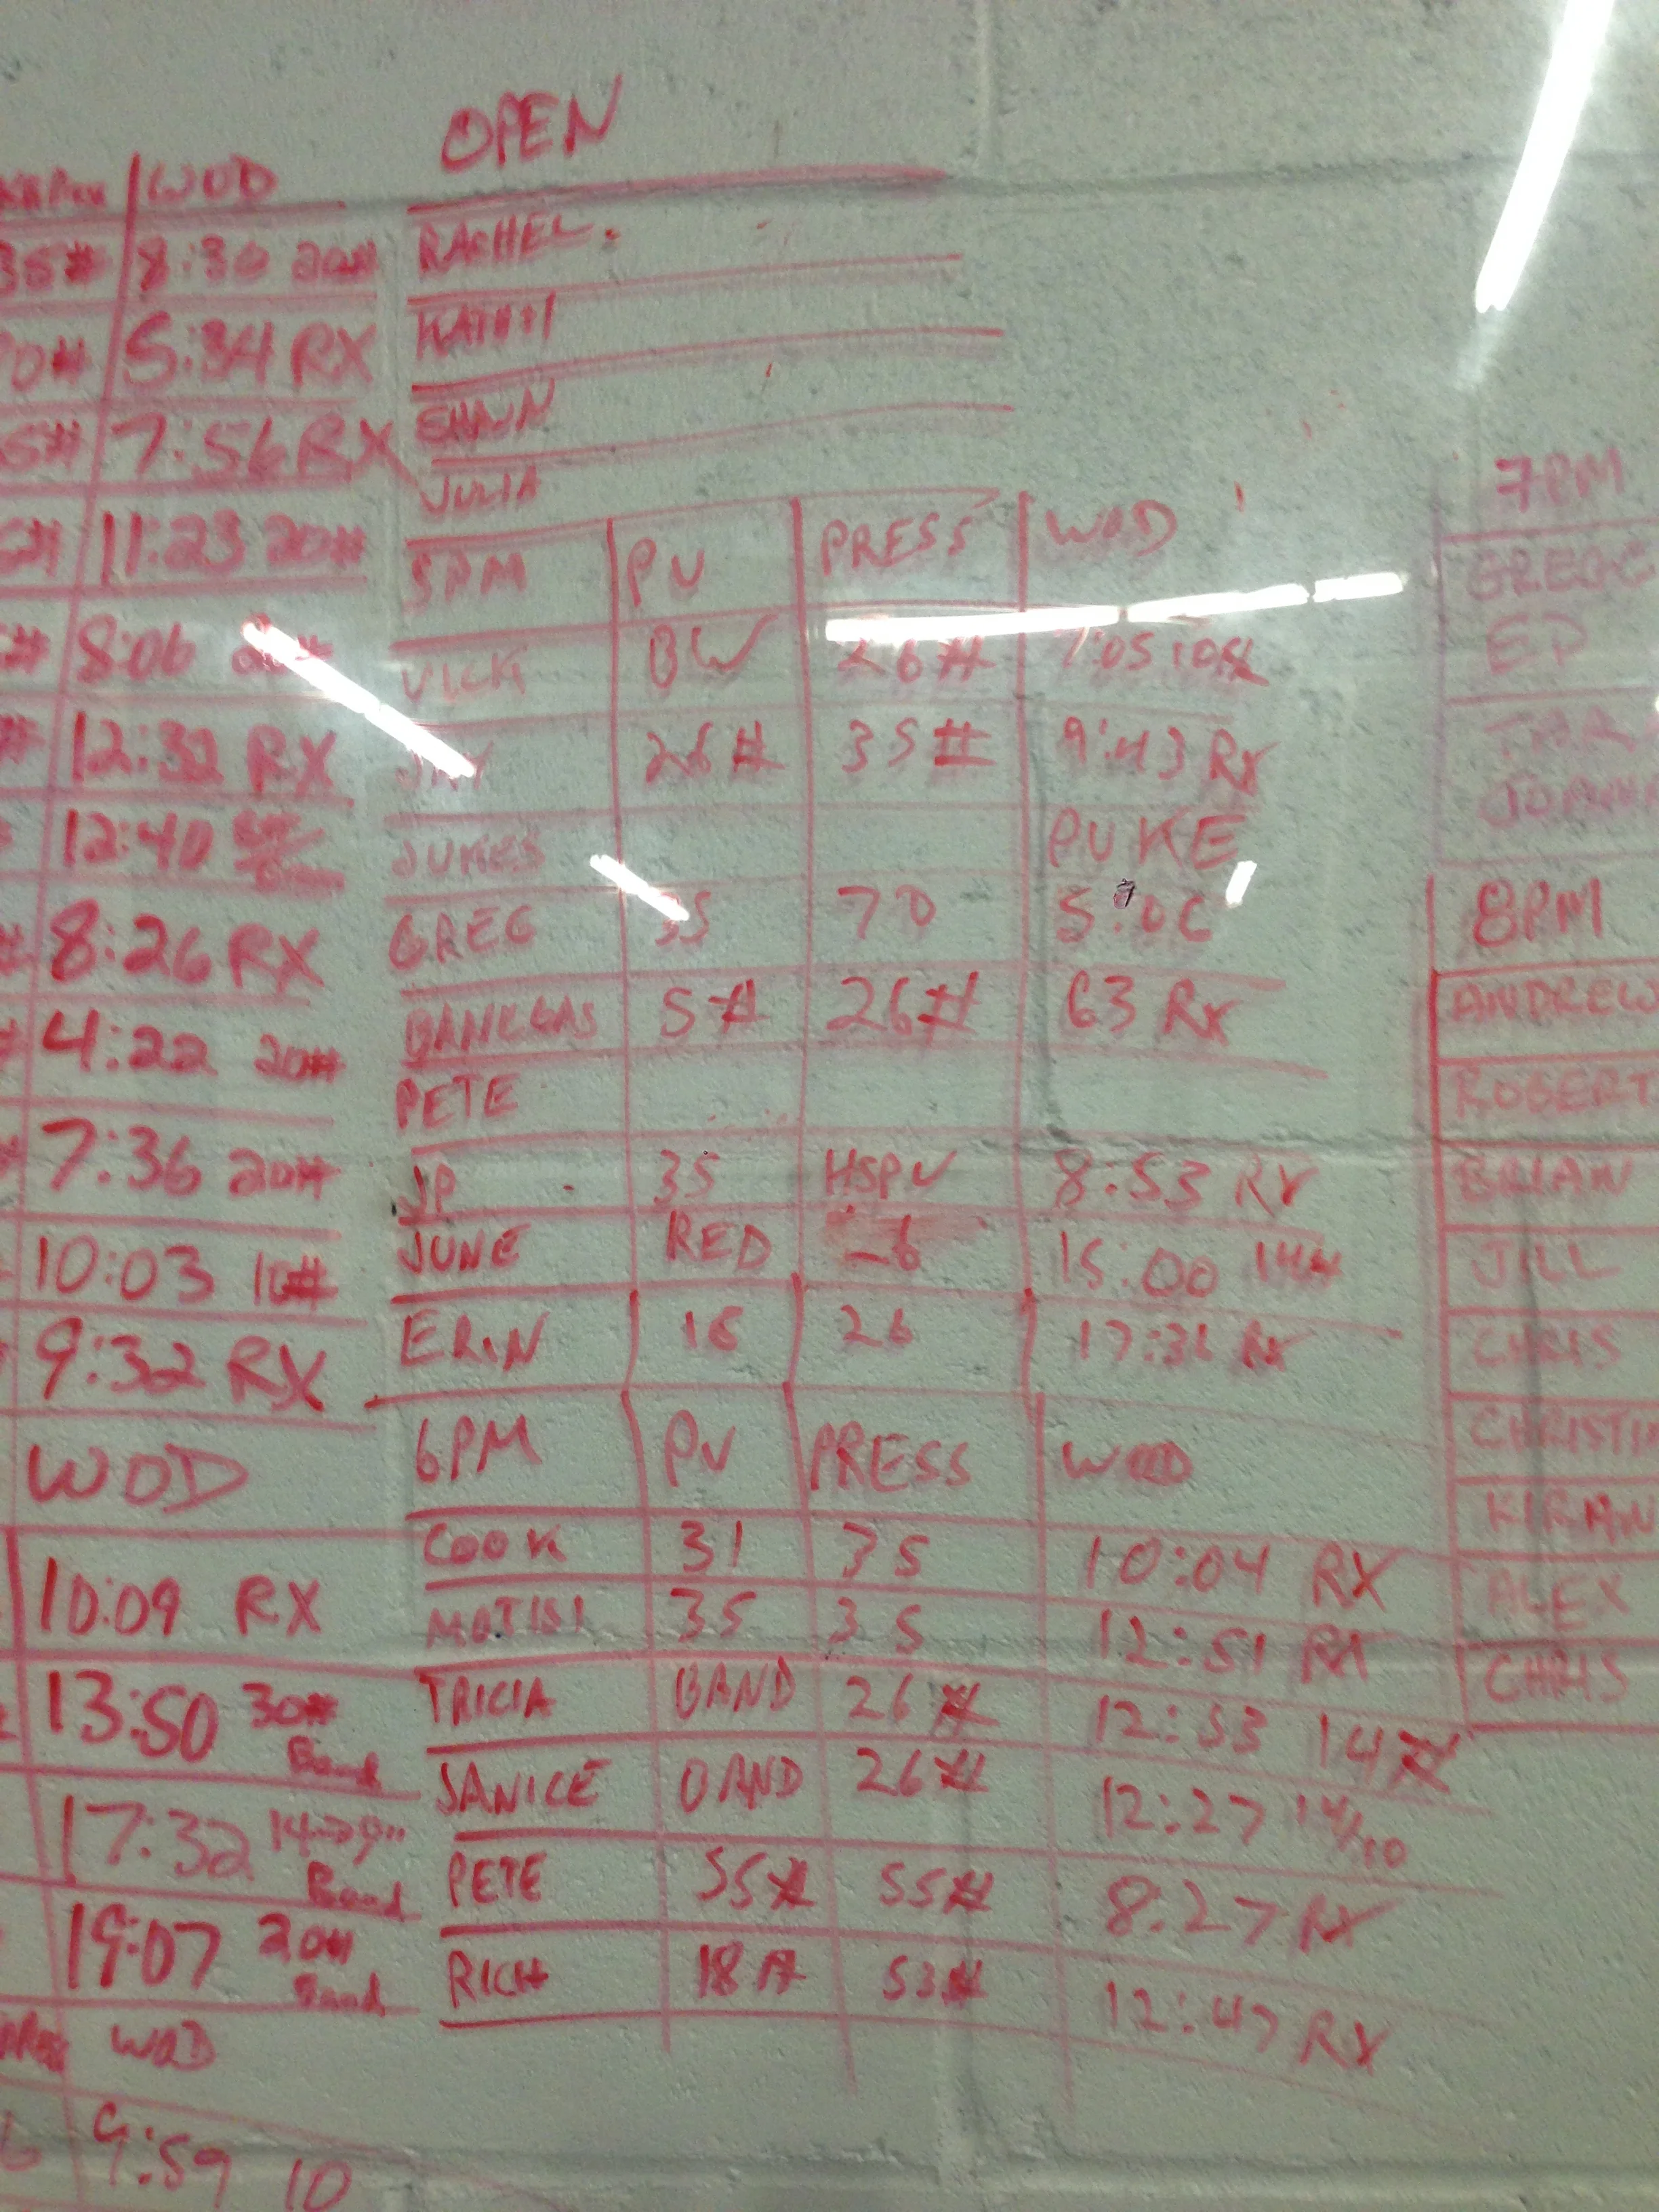 WOD
8:30 20#
5:34 RX
7:56 RX
11:23 20#
8:06
12:32 RX
12:40
8:26 RX
4:22 20#
7:36 20#
10:03
9:32 RX
WOD
10:09 RX
13:50 30#
Band
17:32
Band
19:07 20#
Band
WOD
9:59 10
OPEN
RACHEL
SHAWN
JULIA
5PM PU PRESS WOD
VICK BW 26# 7:05 10#
JAY 26# 35# 9:43 RX
JUKES PUKE
GREG 35 70
5# 26# 63 RX
PETE
JP 35 HSPU 8:53 RX
JUNE RED 15:00 14#
ERIN 26 RX
6PM PU PRESS WOD
COOK 31 35 10:04 RX
35 35 12:51 RX
TRICIA BAND 26# 12:53 14#
JANICE BAND 26# 12:27 14/10
PETE 55# 55# 8:27 RX
RICH 18# 53# 12:47 RX
7PM
ED
8PM
ANDREW
ROBERT
BRIAN
JILL
CHRIS
CHRISTI
KIRAN
ALEX
CHRIS